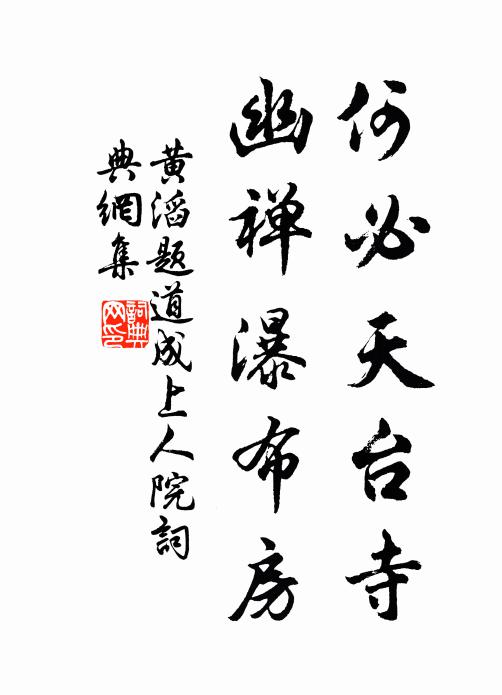 何必天台寺
幽禅瀑布房
黄滔题道成上人院詞
典網集
詞典
网印